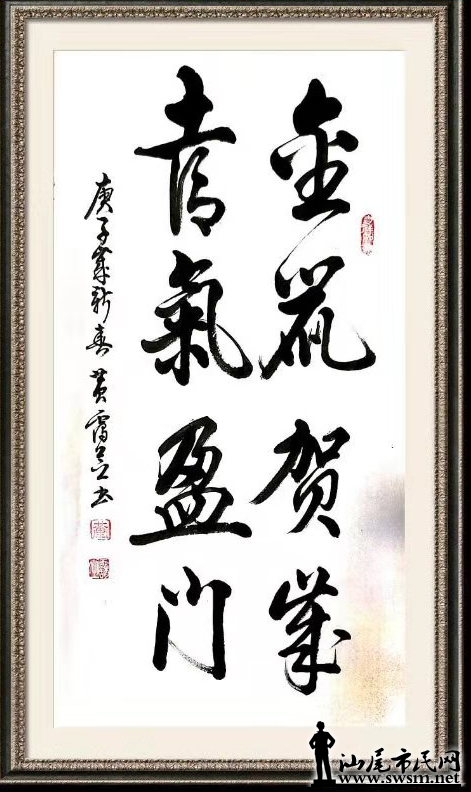 金鼠贺歲
喜氣盈门
庚子歲新春 黄 书
汕尾市民网
www.swsm.net